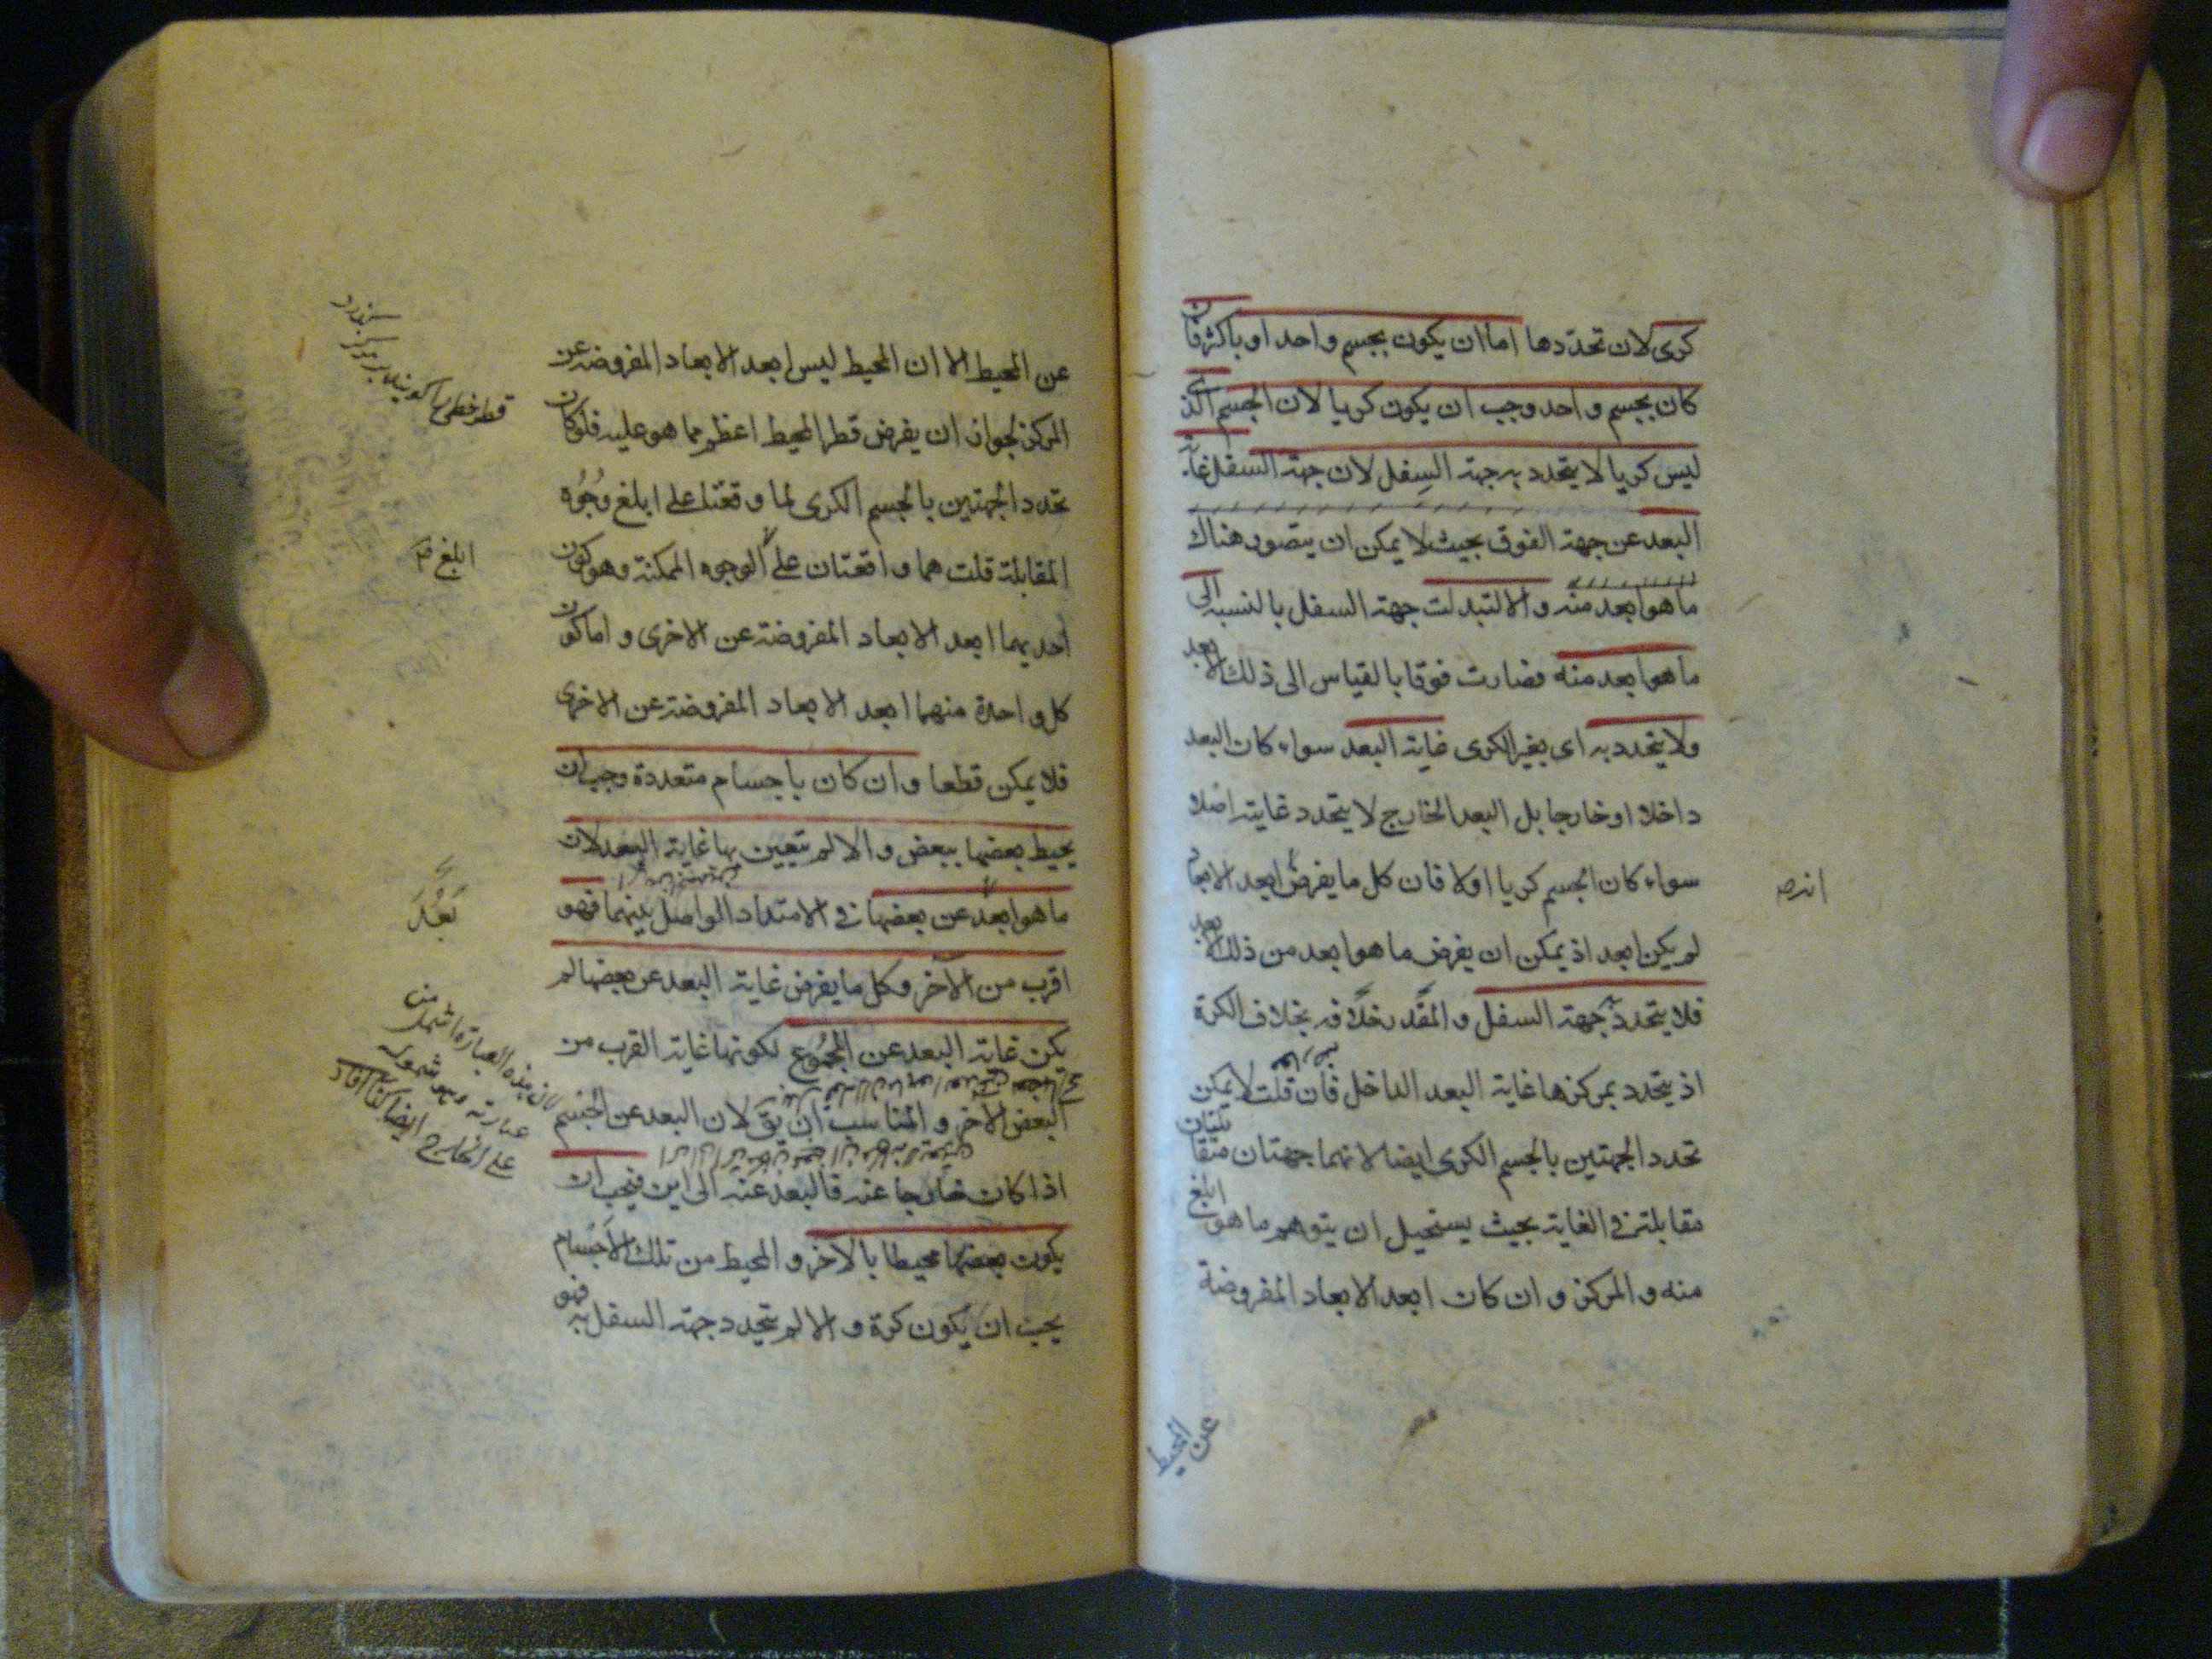 كرى لان تحددها اما ان يكون بجسم واحد او باكثر فان
كان بجسم واحد وجب ان يكون كريا لان الجسم الذى
ليس كريا لا يتحدد به جهة السفل لان جهة السفل غاية
البعد عن جهة الفوق بحيث لا يمكن ان يتصور هناك
ما هو ابعد منه والا لتبدلت جهة السفل بالنسبة الى
ما هو ابعد منه فصارت فوقا بالقياس الى ذلك الابعد
ولا يتحدد به اى بغير الكرى غاية البعد سواء كان البعد
داخلا او خارجا بل البعد الخارج لا يتحدد غايته اصلا
سواء كان الجسم كريا اولا فان كل ما يفرض ابعد الابعاد
لم يكن ابعد اذ يمكن ان يفرض ما هو ابعد من ذلك الابعد
فلا يتحدد به جهة السفل والمقدر خلافه بخلاف الكرة
اذ يتحدد بمركزها غاية البعد الداخل فان قلت لا يمكن
تحدد الجهتين بالجسم الكرى ايضا لانهما جهتان متقابلتان
مقابلة فى الغاية بحيث يستحيل ان يتوهم ما هو ابلغ
منه والمركز وان كان ابعد الابعاد المفروضة
عن المحيط
عن المحيط الا ان المحيط ليس ابعد الابعاد المفروضة عن
المركز لجواز ان يفرض قطر المحيط اعظم مما هو عليه فلو كان
تحدد الجهتين بالجسم الكرى لما وقعتا على ابلغ وجوه
المقابلة قلت هما واقعتان على الوجوه الممكنة وهو كون
احديهما ابعد الابعاد المفروضة عن الاخرى واما كون
كل واحدة منهما ابعد الابعاد المفروضة عن الاخرى
فلا يمكن قطعا وان كان باجسام متعددة وجب ان
يحيط بعضها ببعض والا لم تتعين بها غاية البعد لان
ما هو ابعد عن بعضها فى الامتداد الواصل بينهما فهو
اقرب من الآخر وكل ما يفرض غاية البعد عن بعضها لم
يكن غاية البعد عن المجموع لكونها غاية القرب من
البعض الاخر والمناسب ان يق لان البعد عن الجسم
اذا كان خارجا عنه فالبعد عنه الى اين فيجب ان
يكون بعضها محيطا بالاخر والمحيط من تلك الاجسام
يجب ان يكون كرة والا لم يتحدد جهة السفل به فهو
ابلغ
بَعُدَ
لان هذه العبارة اشمل من
عبارته وهو شموله
على الخارج ايضا